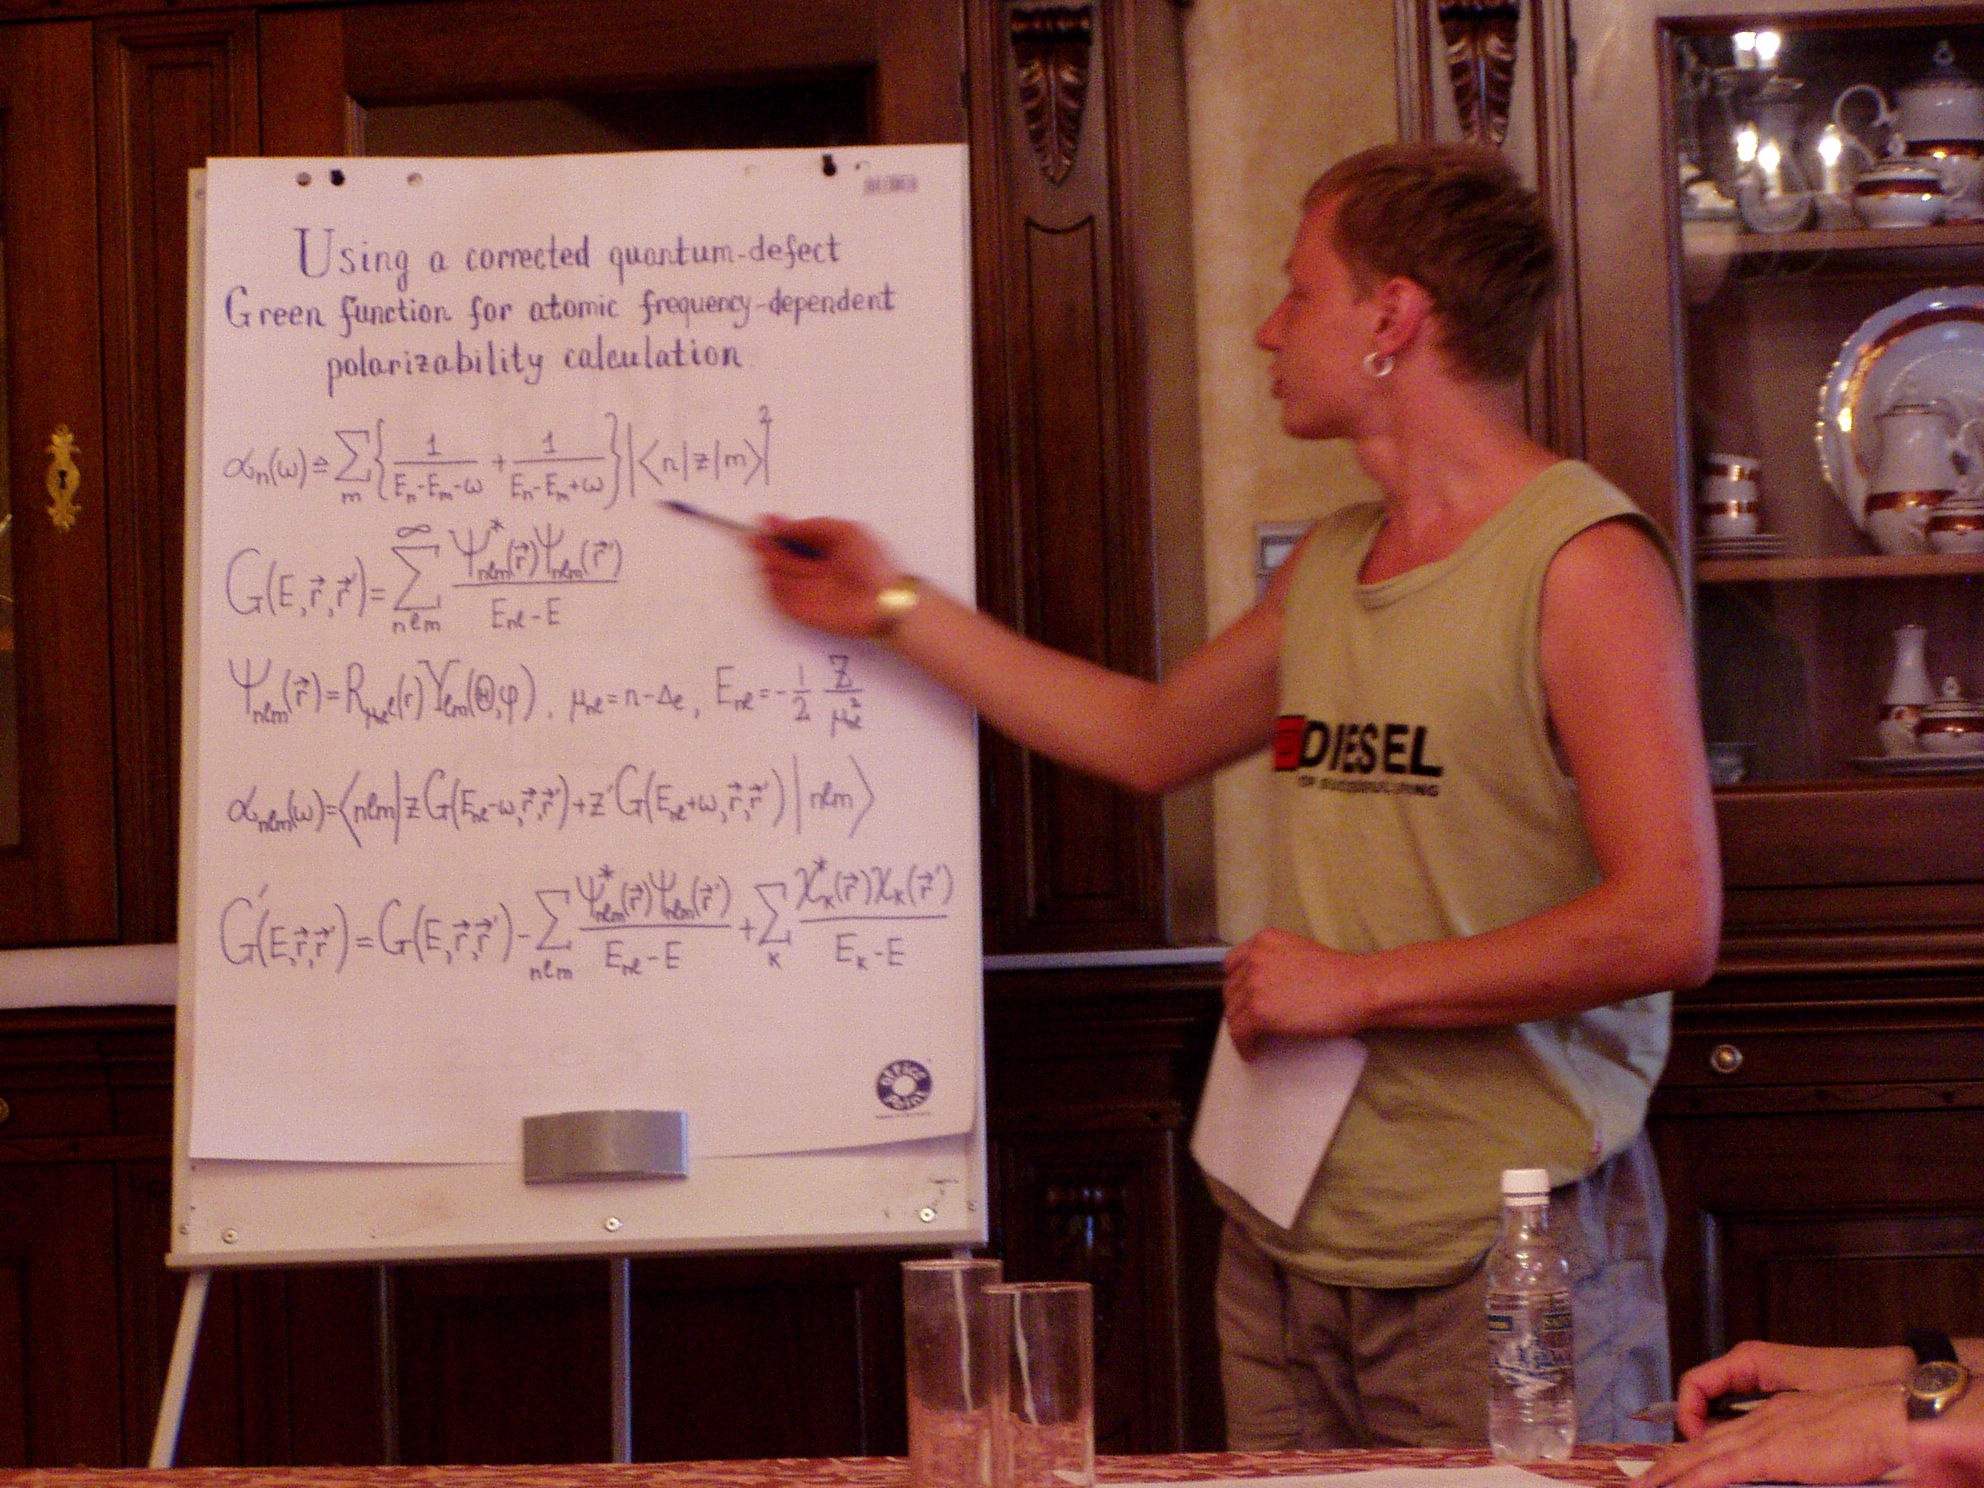 Using a corrected quantum-defect
Green function for atomic frequency-dependent
polarizability calculation
αₙ(ω) ≙ ∑ₘ { 1/(Eₙ-Eₘ-ω) + 1/(Eₙ-Eₘ+ω) } |⟨n|z|m⟩|²
G(E, r⃗, r⃗') = ∑ₙₗₘ^∞ Ψ*ₙₗₘ(r⃗)Ψₙₗₘ(r⃗') / (Eₙₗ - E)
Ψₙₗₘ(r⃗) = R_{μₙₗ l}(r) Yₗₘ(Θ,φ), μₙₗ = n - Δₗ, Eₙₗ = -1/2 Z/μ²ₙₗ
αₙₗₘ(ω) = ⟨nlm| z G(Eₙₗ-ω, r⃗, r⃗') + z' G(Eₙₗ+ω, r⃗, r⃗') |nlm⟩
G'(E, r⃗, r⃗') = G(E, r⃗, r⃗') - ∑ₙₗₘ Ψ*ₙₗₘ(r⃗)Ψₙₗₘ(r⃗') / (Eₙₗ - E) + ∑ₖ χ*ₖ(r⃗)χₖ(r⃗') / (Eₖ - E)
OFFICE
POINT
DIESEL
FOR SUCCESSFUL LIVING